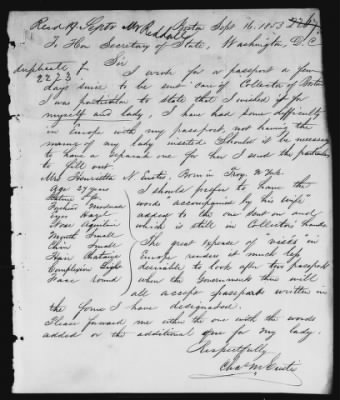 Recd 19 Sept Mr Reddall
Boston Sept 16. 1853
To Hon Secretary of State, Washington, D.C.
Sir
duplicate for
2273.
I wrote for a passport a few
days since to be sent "care of Collector of Boston"
I was particular to state that I wished it for
myself and lady, I have had some difficulty
in Europe with my passport, not having the
name of my lady inserted Should it be necessary
to have a separate one for her I send the particulars
to fill out.
Mrs Henrietta N. Eustis, Born in Troy, N York.
Age 27 years
Stature ft.
Forehead Moderate
Eyes Hazel
Nose Aquiline
Mouth Small
Chin Small
Hair Chataigne
Complexion Light
Face round
I should prefer to have the
words "accompanied by his wife"
added to the one sent on and
which is still in Collectors hands
The great expense of visés in
Europe renders it much less
desirable to look after two passports
when the Governments there will
all accept passports written in
the form I have designated.
Please forward me either the one with the words
added or the additional one for my lady.
Respectfully
Chas M Eustis